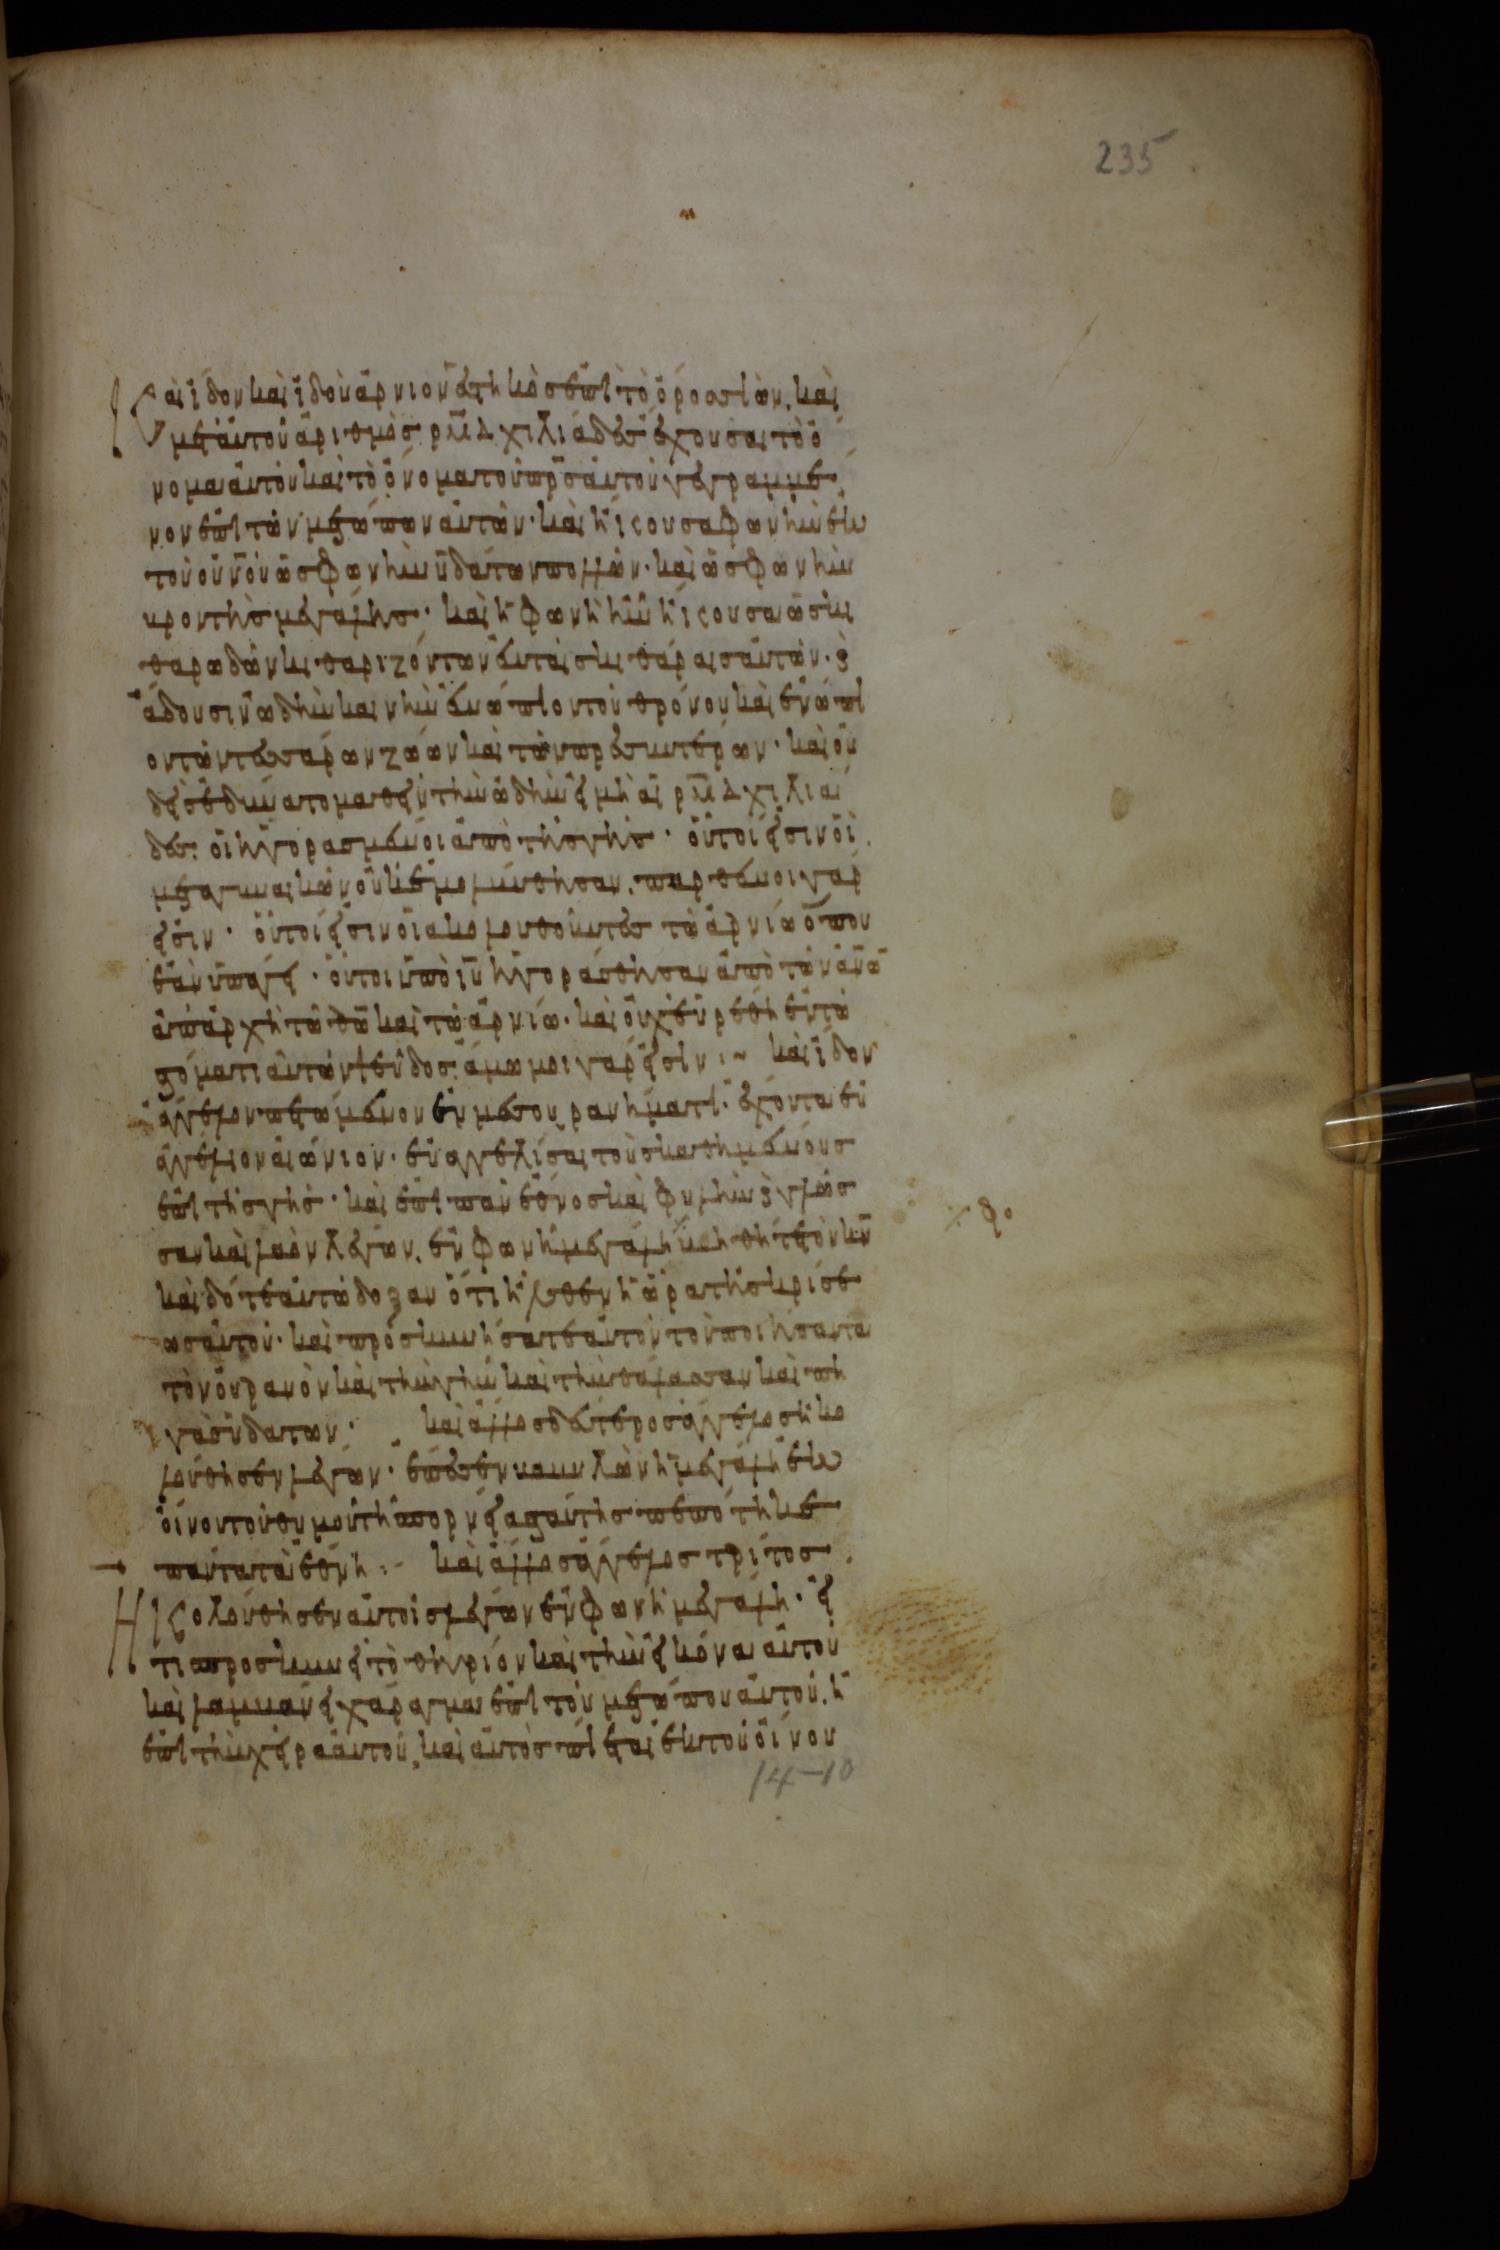 235
Καὶ ἴδον καὶ ἰδοὺ ἀρνίον ἑστηκὸς ἐπὶ τὸ ὄρος σιὼν, καὶ
μετ αὐτοῦ ἀριθμὸς ρμδ χιλιάδες ἔχουσαι τὸ ὄ
νομα αὐτοῦ καὶ τὸ ὄνομα τοῦ πρσ αὐτοῦ γεγραμμέ
νον ἐπὶ τῶν μετώπων αὐτῶν· καὶ ἤκουσα φωνὴν ἐκ
τοῦ οὐνοῦ ὡς φωνὴν ὑδάτων πολλῶν· καὶ ὡς φωνὴν
βροντῆς μεγάλης· καὶ ἡ φωνὴ ἣν ἤκουσα ὡς κι
θαρωδῶν κιθαριζόντων ἐν ταῖς κιθάραις αὐτῶν· ϗ
ἄδουσιν ὠδὴν καινὴν ἐνώπιον τοῦ θρόνου καὶ ἐνώπι
ον τῶν τεσσάρων ζώων καὶ τῶν πρεσβυτέρων· καὶ οὐ
δεὶς ἐδύνατο μαθεῖν τὴν ὠδὴν εἰ μὴ αἱ ρμδ χιλιά
δες οἱ ἠγορασμένοι ἀπὸ τῆς γῆς· οὗτοί εἰσιν οἳ
μετα γυναικῶν οὐκ ἐμολύνθησαν, παρθένοι γάρ
εἰσιν· οὗτοί εἰσιν οἱ ακολουθοῦντες τῶ ἀρνίω ὅπου
ἐὰν ὑπάγει· οὗτοι ὑπὸ ιυ ἠγοράσθησαν ἀπὸ τῶν ἀνω
ἀπαρχὴ τῶ θω καὶ τῶ ἀρνίω· καὶ οὐχ εὑρέθη ἐν τῶ
στόματι αὐτῶν ψεῦδος· ἄμωμοι γάρ εἰσίν :~ καὶ ἴδον
ἄγγελον πετώμενον ἐν μεσουρανήματι· ἔχοντα εὐ
αγγέλιον αἰώνιον· εὐαγγελίσαι τοὺς καθημένους
ἐπὶ τῆς γῆς· καὶ ἐπὶ παν ἔθνος καὶ φυλὴν ϗ γλῶσ
σαν καὶ λαὸν λέγων, ἐν φωνῆ μεγάλη φοβήθητε τὸν κν
καὶ δότε αὐτῶ δοξαν ὅτι ἦλθεν ἡ ὥρα τῆς κρίσε
ως αὐτοῦ· καὶ προσκυνήσατε αὐτὸν τὸν ποιήσαντα
τὸν οὐρανὸν καὶ τὴν γῆν καὶ τὴν θάλασσαν καὶ πη
γὰς ὑδάτων· καὶ ἄλλος δεύτερος ἄγγελος ἠκο
λούθησεν λέγων· ἔπεσεν βαβυλὼν ἡ μεγάλη ἐκ
οἴνου τοῦ θυμοῦ τῆς πορνείας αὐτῆς πεπότηκε
πάντα τὰ ἔθνη :- καὶ ἄλλος ἄγγελος τρίτος
Ηκολούθησεν αὐτοῖς λέγων ἐν φωνῆ μεγάλη· εἴ
τις προσκυνεῖ τὸ θηρίον καὶ τὴν εἰκόνα αὐτοῦ
καὶ λαμβάνει χάραγμα ἐπὶ τὸν μετώπου αὐτοῦ, ἢ
ἐπὶ τὴν χεῖρα αὐτοῦ, καὶ αὐτὸς πίεται ἐκ τοῦ οἴνου
14-10